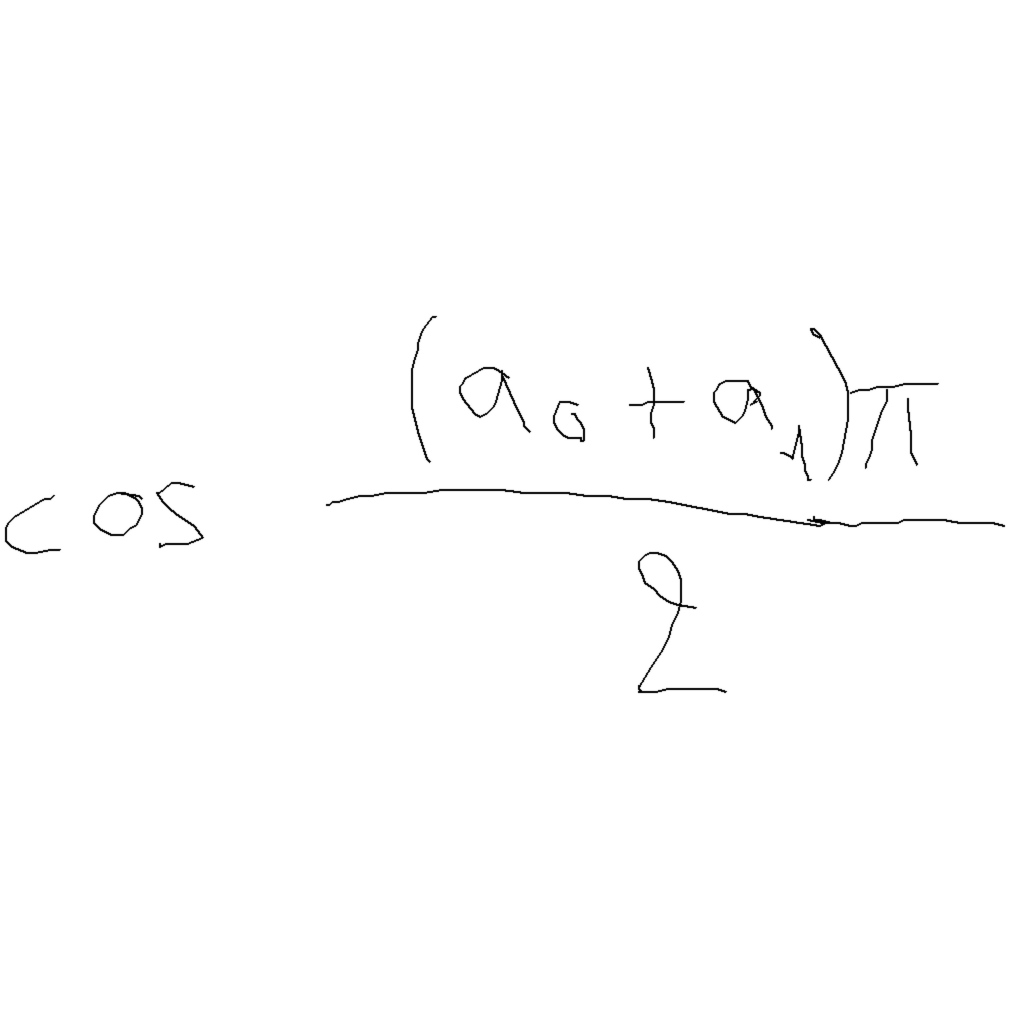 cos \frac{(a_0 + a_1)\pi}{2}